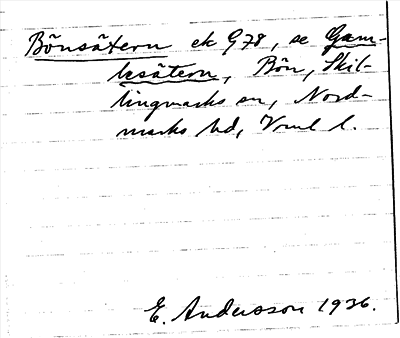 Bönsätern ek G78, se Gam-
lesätern, Bön, Skil-
lingmarks sn, Nord-
marks hd, Vrml l.
E. Andersson 1936.